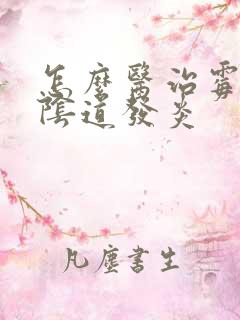 怎麼醫治霉
陰道發炎
凡塵書生